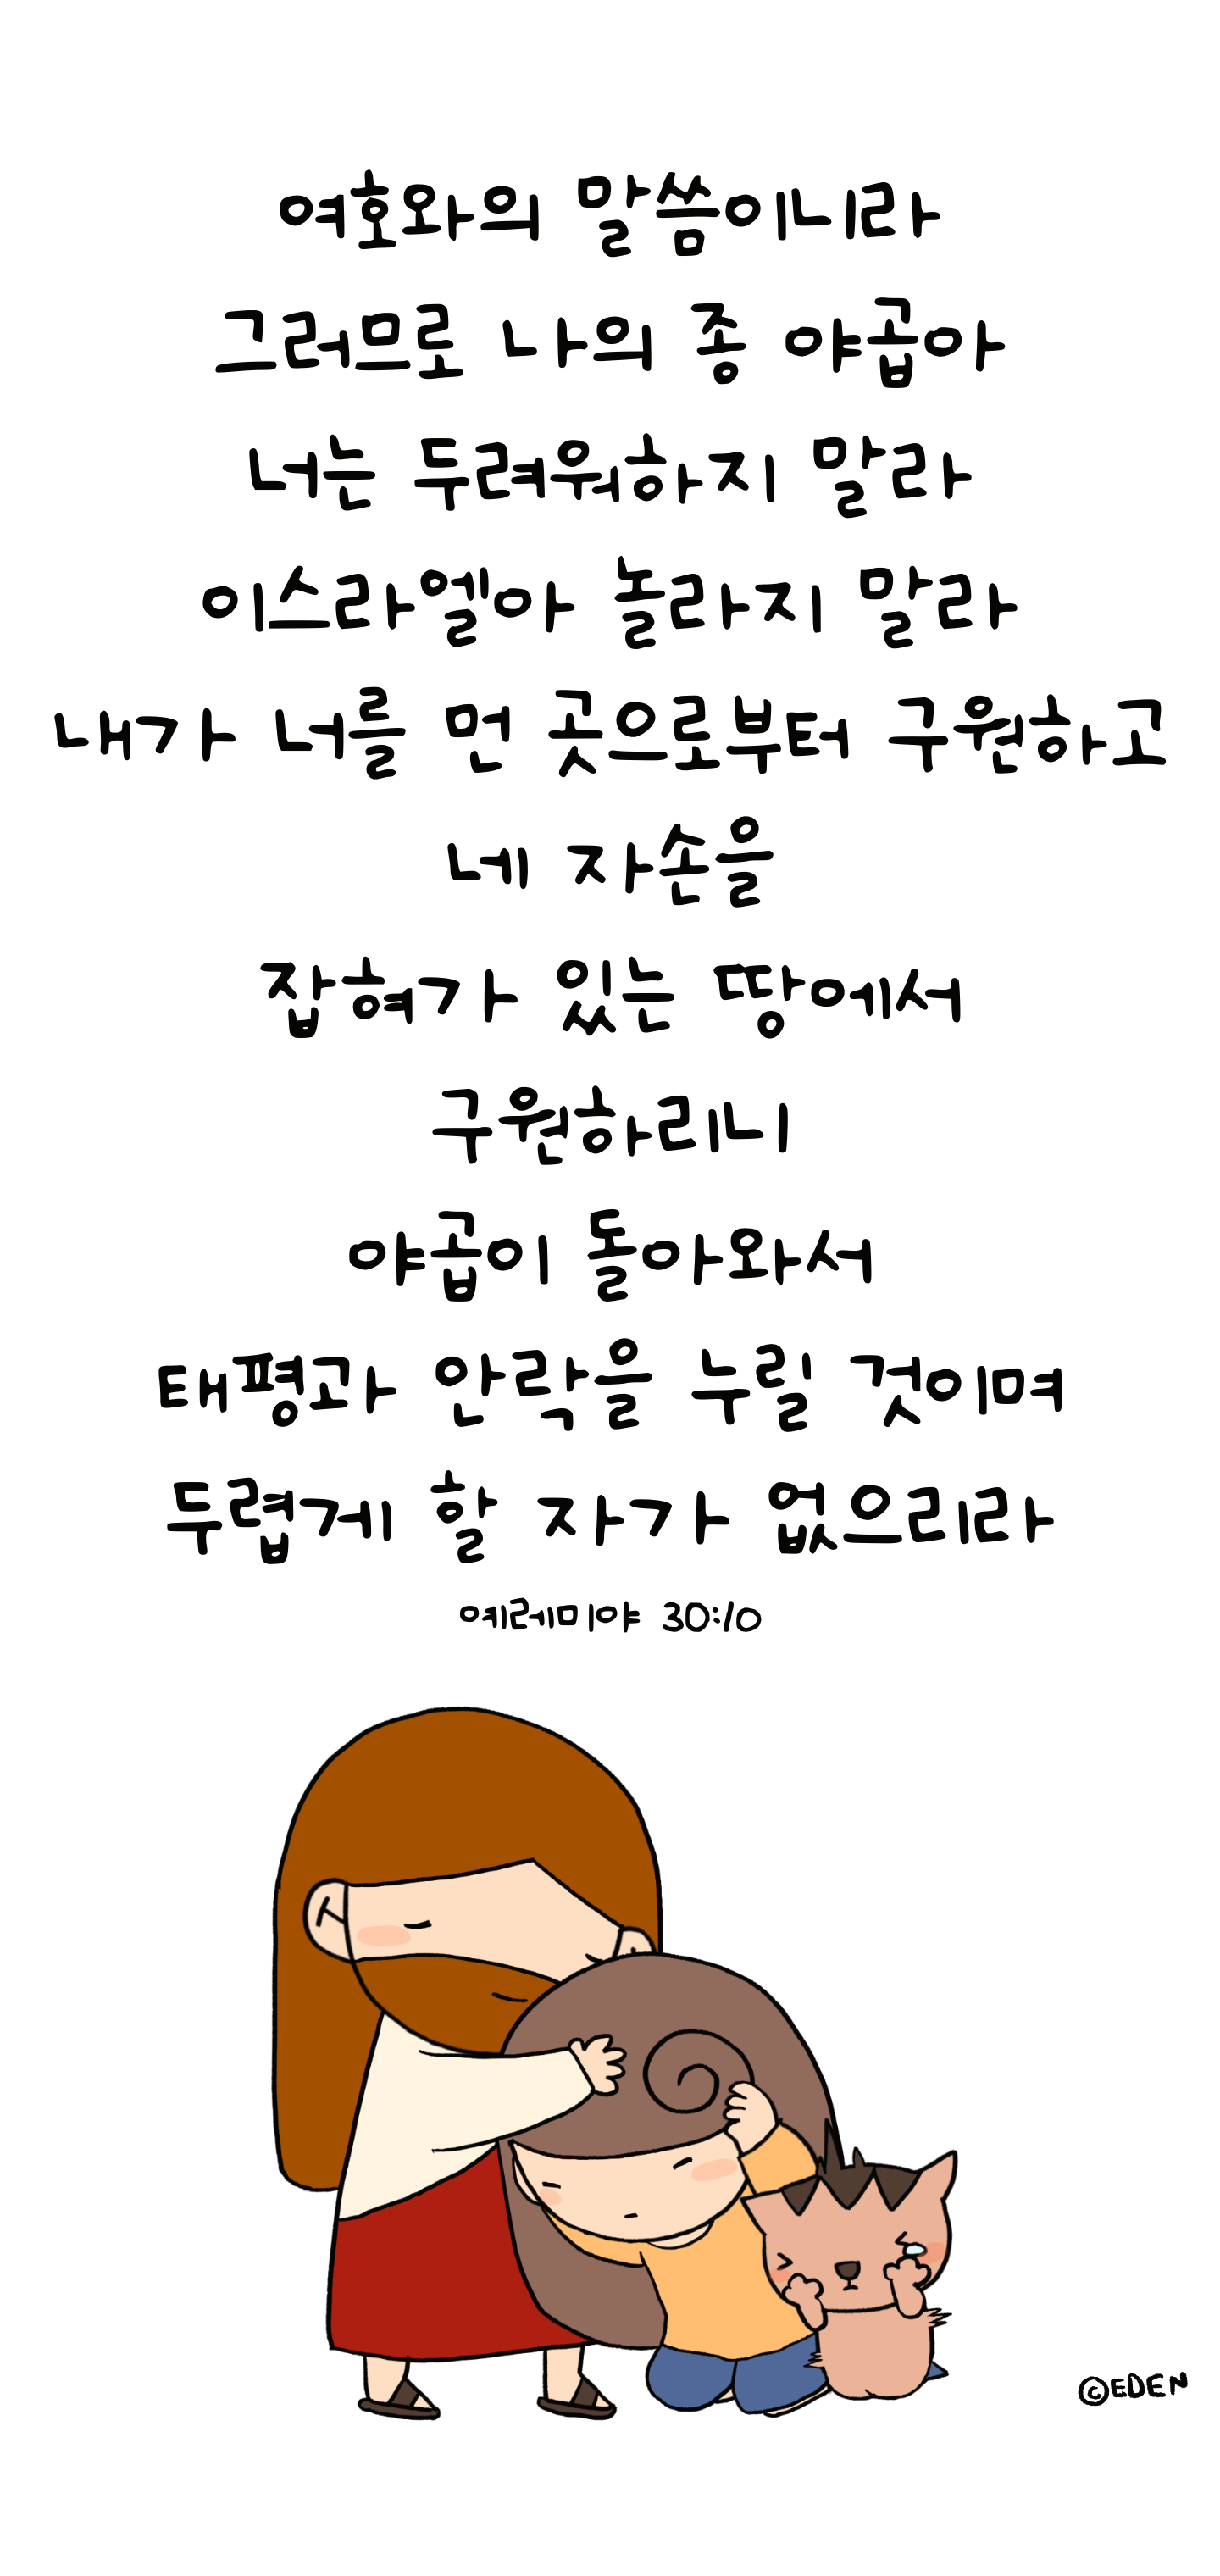 여호와의 말씀이니라
그러므로 나의 종 야곱아
너는 두려워하지 말라
이스라엘아 놀라지 말라
내가 너를 먼 곳으로부터 구원하고
네 자손을
잡혀가 있는 땅에서
구원하리니
야곱이 돌아와서
태평과 안락을 누릴 것이며
두렵게 할 자가 없으리라
예레미야 30:10
©EDEN